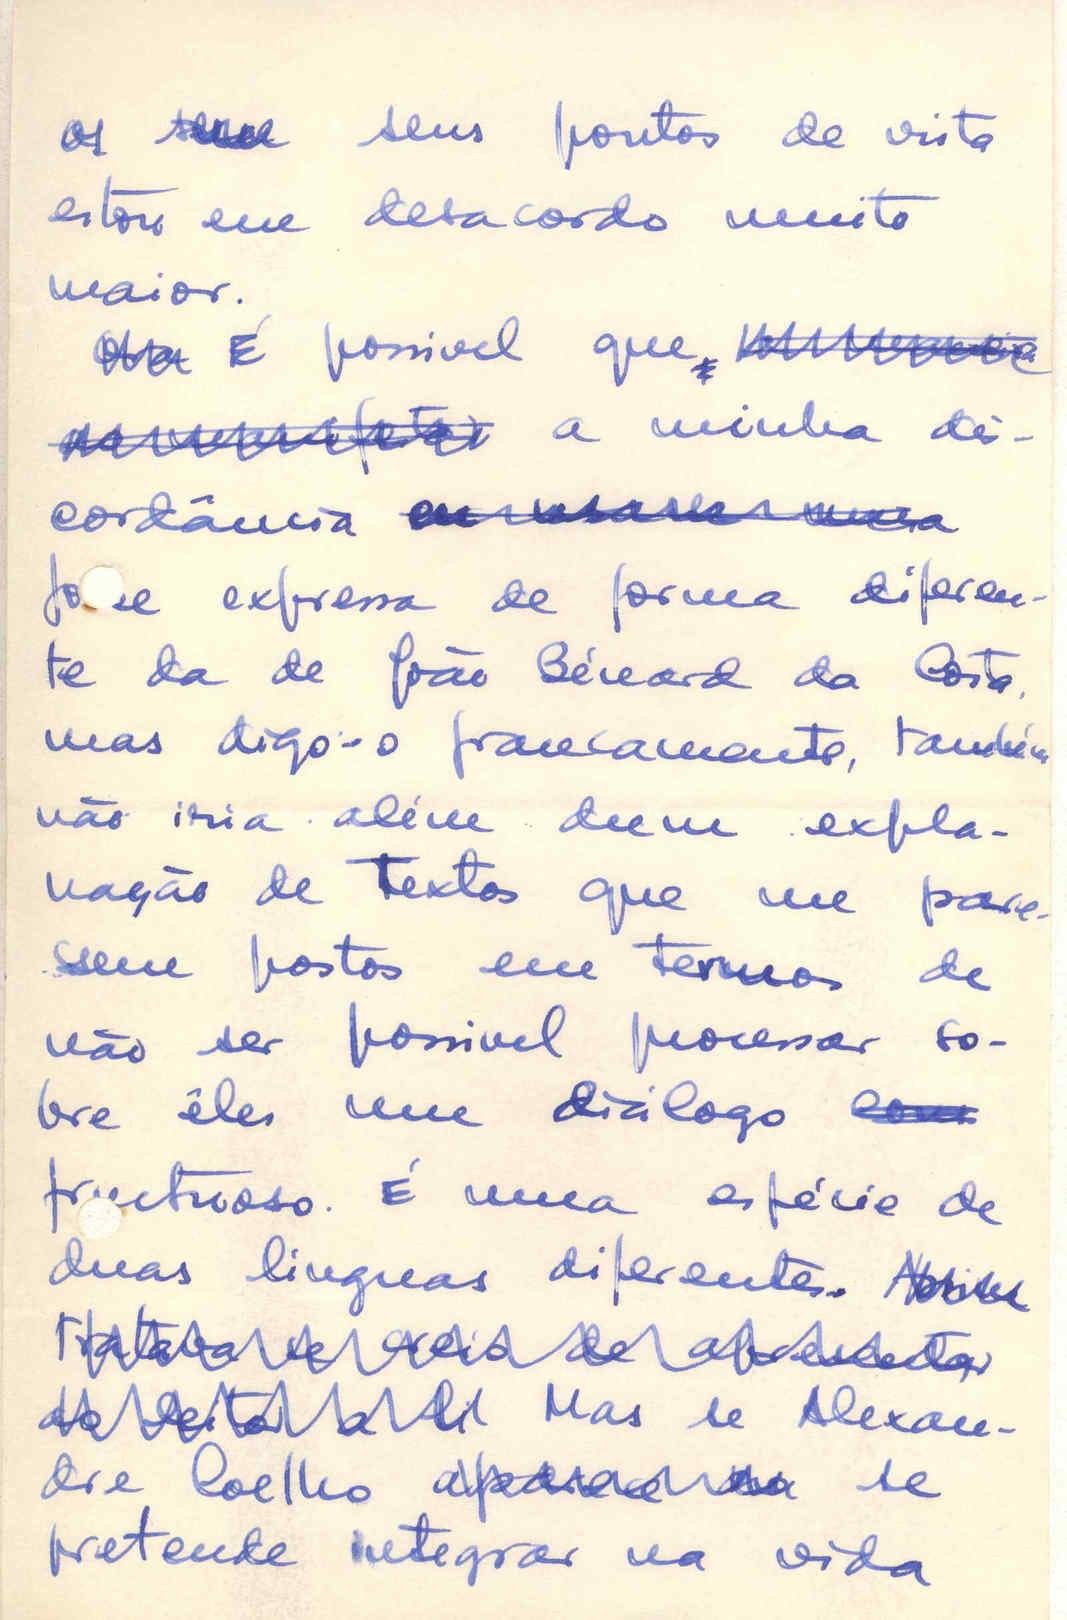 os seus pontos de vista
estão em desacordo muito
maior.
Ora É possivel que,
a minha dis-
cordância
fosse expressa de forma diferen-
te da de João Bénard da Costa,
mas digo-o francamente, também
não iria além dum expla-
nação de textos que me pare-
ssem postos em termos de
não ser possivel processar so-
bre êles um diálogo com
fructuoso. É uma espécie de
duas linguas diferentes.
Tratava se creio de apresentar
ao leitor a Mas se Alexan-
dre Coelho aparece na se
pretende integrar na vida